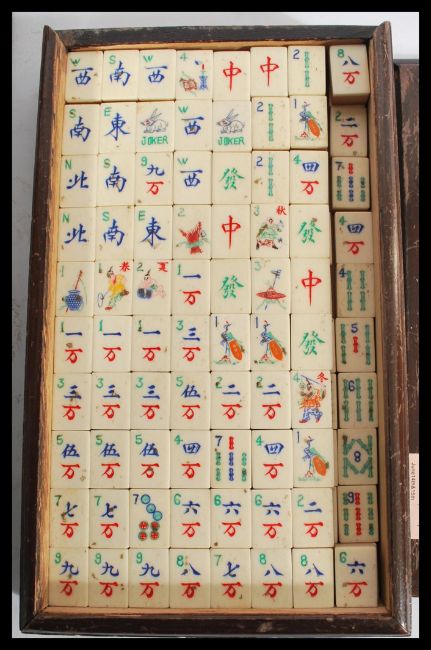 W S W 4 2 8
西 南 西 中 中 八
万
S E W 2 1 2
南 東 西 二
JOKER JOKER 万
N S 9 W 2 4 7
北 南 九 西 發 四
万 万
N S E 2 3 秋 4
北 南 東 中 發 四
万
1 1 春 2 夏 1 3 4
一 發 中
万
1 1 1 3 1 1 5
一 一 一 三 發
万 万 万 万
3 3 3 5 2 2 4 冬 6
三 三 三 伍 二 二
万 万 万 万 万 万
5 5 5 4 7 4 1 8
伍 伍 伍 四 四
万 万 万 万 万
7 7 7 6 6 6 2 9
七 七 六 六 六 二
万 万 万 万 万 万
9 9 9 8 7 8 8 6
九 九 九 八 七 八 八 六
万 万 万 万 万 万 万 万